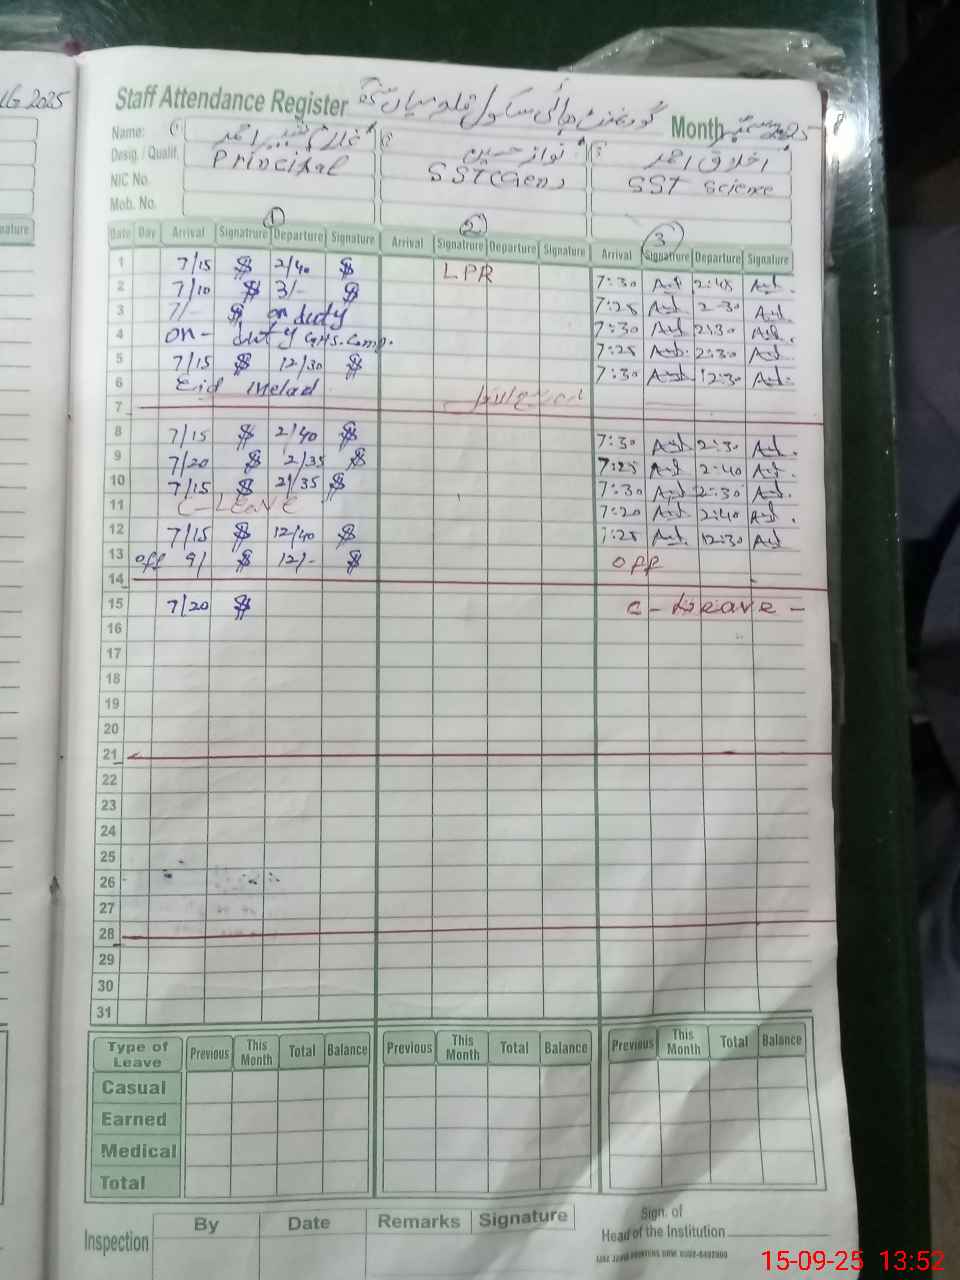 UG 2025
Staff Attendance Register گورنمنٹ ہائی سکول قلعہ میاں
Month ستمبر 2025
Name: ① غلام شبیر احمد ② نواز حسین ③ اخلاق احمد
Desig. / Qualif. Principal SST(Gen) SST Science
NIC No.
Mob. No.
① ② ③
Date Day Arrival Signatrure Departure Signature Arrival Signatrure Departure Signature Arrival Signatrure Departure Signature
1 7/15 2/40 LPR 7:30 2:45
2 7/10 3/- 7:25 2:30
3 7/- on duty 7:30 2:30
4 on - duty GHS. Comp. 7:25 2:30
5 7/15 12/30 7:30 12:30
6 Eid Melad
7
8 7/15 2/40 7:30 2:30
9 7/20 2/35 7:25 2:40
10 7/15 2/35 7:30 2:30
11 C-LEAVE 7:20 2:40
12 7/15 12/40 7:25 12:30
13 off 9/ 12/- OFF
14
15 7/20 C - Leave -
16
17
18
19
20
21
22
23
24
25
26
27
28
29
30
31
Type of Leave Previous This Month Total Balance Previous This Month Total Balance Previous This Month Total Balance
Casual
Earned
Medical
Total
Inspection By Date Remarks Signature Sign. of Head of the Institution
15-09-25 13:52